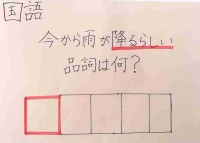 国語
今から雨が降るらしい
品詞は何？